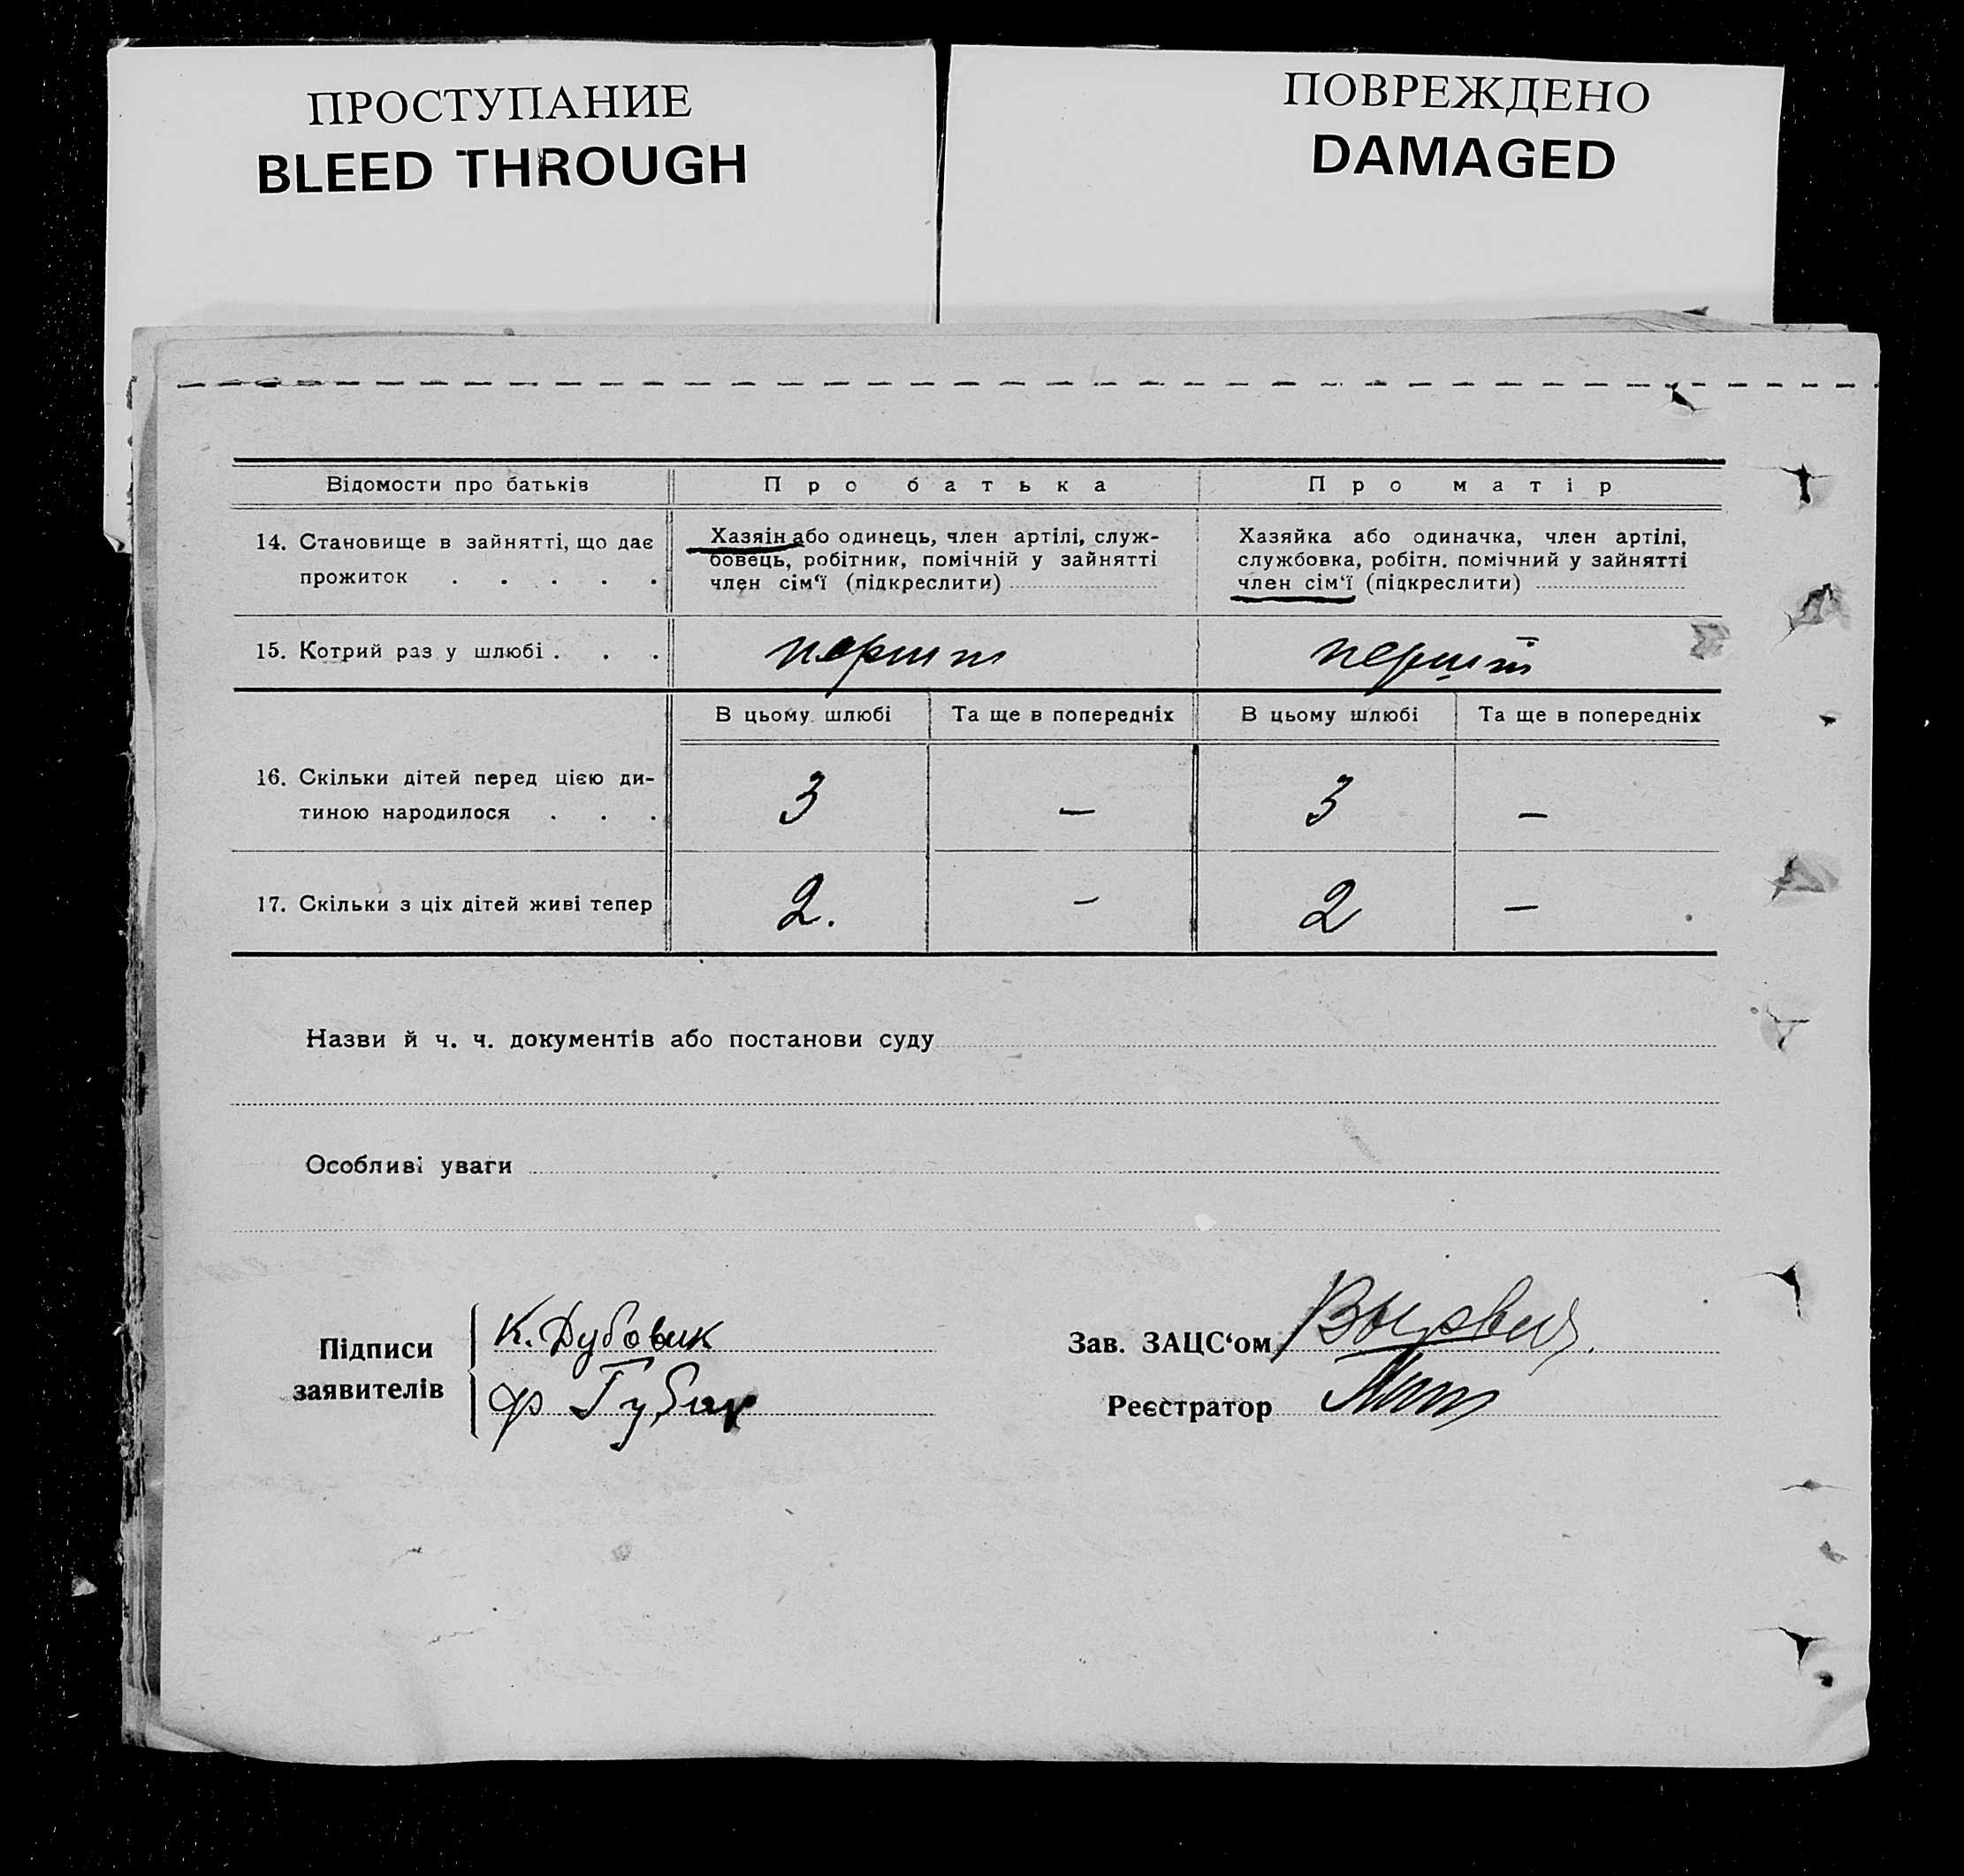 ПРОСТУПАНИЕ
BLEED THROUGH
ПОВРЕЖДЕНО
DAMAGED
Відомости про батьків
Про батька
Про матір
14. Становище в зайнятті, що дає
прожиток . . . . .
Хазяін або одинець, член артілі, служ-
бовець, робітник, помічній у зайнятті
член сім‘ї (підкреслити)
Хазяйка або одиначка, член артілі,
службовка, робітн. помічний у зайнятті
член сім‘ї (підкреслити)
15. Котрий раз у шлюбі . . .
перший
перший
В цьому шлюбі
Та ще в попередніх
В цьому шлюбі
Та ще в попередніх
16. Скільки дітей перед цією ди-
тиною народилося . . .
3
—
3
—
17. Скільки з ціх дітей живі тепер
2.
—
2
—
Назви й ч. ч. документів або постанови суду
Особливі уваги
Підписи
заявителів
К. Дубовик
Ф Губар
Зав. ЗАЦС‘ом
Реєстратор